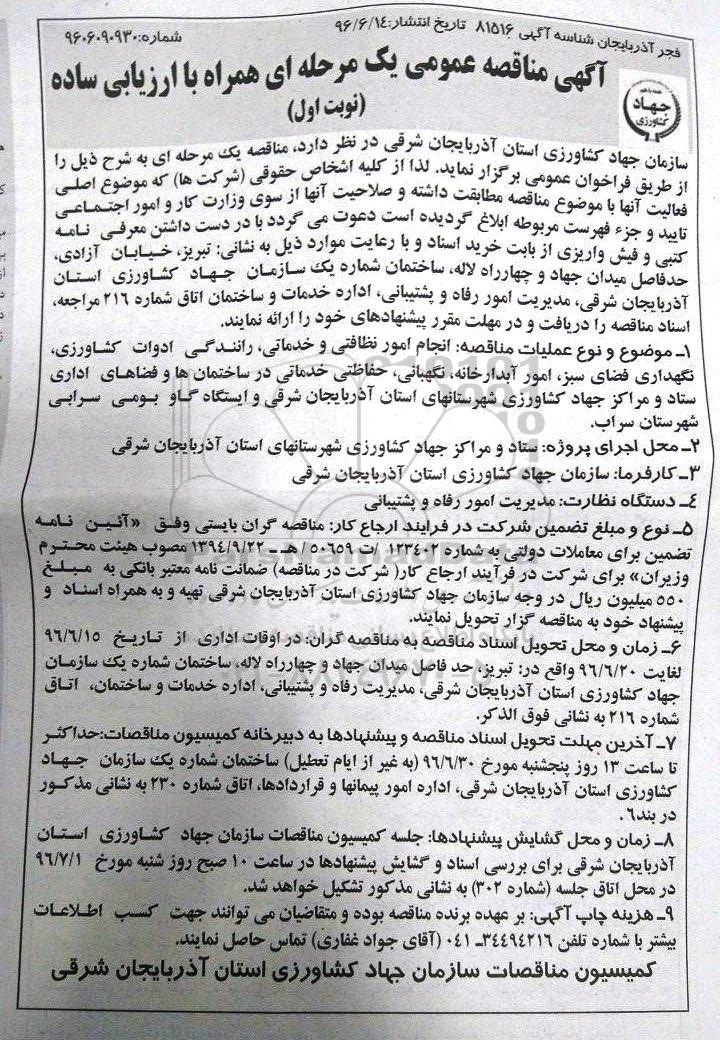 فجر آذربایجان شناسه آگهی ۸۱۵۱۶ تاریخ انتشار:۹۶/۶/۱۴ شماره:۹۶۰۶۰۹۰۹۳۰
آگهی مناقصه عمومی یک مرحله ای همراه با ارزیابی ساده
(نوبت اول)
جهاد
کشاورزی
سازمان جهاد کشاورزی استان آذربایجان شرقی در نظر دارد، مناقصه یک مرحله ای به شرح ذیل را
از طریق فراخوان عمومی برگزار نماید. لذا از کلیه اشخاص حقوقی (شرکت ها) که موضوع اصلی
فعالیت آنها با موضوع مناقصه مطابقت داشته و صلاحیت آنها از سوی وزارت کار و امور اجتماعی
تایید و جزء فهرست مربوطه ابلاغ گردیده است دعوت می گردد با در دست داشتن معرفی نامه
کتبی و فیش واریزی از بابت خرید اسناد و با رعایت موارد ذیل به نشانی: تبریز، خیابان آزادی،
حدفاصل میدان جهاد و چهارراه لاله، ساختمان شماره یک سازمان جهاد کشاورزی استان
آذربایجان شرقی، مدیریت امور رفاه و پشتیبانی، اداره خدمات و ساختمان اتاق شماره ۲۱۶ مراجعه،
اسناد مناقصه را دریافت و در مهلت مقرر پیشنهادهای خود را ارائه نمایند.
۱ـ موضوع و نوع عملیات مناقصه: انجام امور نظافتی و خدماتی، رانندگی ادوات کشاورزی،
نگهداری فضای سبز، امور آبدارخانه، نگهبانی، حفاظتی خدماتی در ساختمان ها و فضاهای اداری
ستاد و مراکز جهاد کشاورزی شهرستانهای استان آذربایجان شرقی و ایستگاه گاو بومی سرابی
شهرستان سراب.
۲ـ محل اجرای پروژه: ستاد و مراکز جهاد کشاورزی شهرستانهای استان آذربایجان شرقی
۳ـ کارفرما: سازمان جهاد کشاورزی استان آذربایجان شرقی
۴ـ دستگاه نظارت: مدیریت امور رفاه و پشتیبانی
۵ـ نوع و مبلغ تضمین شرکت در فرایند ارجاع کار: مناقصه گران بایستی وفق «آئین نامه
تضمین برای معاملات دولتی به شماره ۱۲۳۴۰۲ /ت ۵۰۶۵۹ / هـ ـ ۱۳۹۴/۹/۲۲ مصوب هیئت محترم
وزیران» برای شرکت در فرآیند ارجاع کار( شرکت در مناقصه) ضمانت نامه معتبر بانکی به مبلغ
۵۵۰ میلیون ریال در وجه سازمان جهاد کشاورزی استان آذربایجان شرقی تهیه و به همراه اسناد و
پیشنهاد خود به مناقصه گزار تحویل نمایند.
۶ـ زمان و محل تحویل اسناد مناقصه به مناقصه گران: در اوقات اداری از تاریخ ۹۶/۶/۱۵
لغایت ۹۶/۶/۲۰ واقع در: تبریز، حد فاصل میدان جهاد و چهارراه لاله، ساختمان شماره یک سازمان
جهاد کشاورزی استان آذربایجان شرقی، مدیریت رفاه و پشتیبانی، اداره خدمات و ساختمان، اتاق
شماره ۲۱۶ به نشانی فوق الذکر.
۷ـ آخرین مهلت تحویل اسناد مناقصه و پیشنهادها به دبیرخانه کمیسیون مناقصات:حداکثر
تا ساعت ۱۳ روز پنجشنبه مورخ ۹۶/۶/۳۰ (به غیر از ایام تعطیل) ساختمان شماره یک سازمان جهاد
کشاورزی استان آذربایجان شرقی، اداره امور پیمانها و قراردادها، اتاق شماره ۲۳۰ به نشانی مذکور
در بند۶.
۸ـ زمان و محل گشایش پیشنهادها: جلسه کمیسیون مناقصات سازمان جهاد کشاورزی استان
آذربایجان شرقی برای بررسی اسناد و گشایش پیشنهادها در ساعت ۱۰ صبح روز شنبه مورخ ۹۶/۷/۱
در محل اتاق جلسه (شماره ۳۰۲) به نشانی مذکور تشکیل خواهد شد.
۹ـ هزینه چاپ آگهی: بر عهده برنده مناقصه بوده و متقاضیان می توانند جهت کسب اطلاعات
بیشتر با شماره تلفن ۳۴۴۹۴۲۱۶ـ ۰۴۱ (آقای جواد غفاری) تماس حاصل نمایند.
کمیسیون مناقصات سازمان جهاد کشاورزی استان آذربایجان شرقی